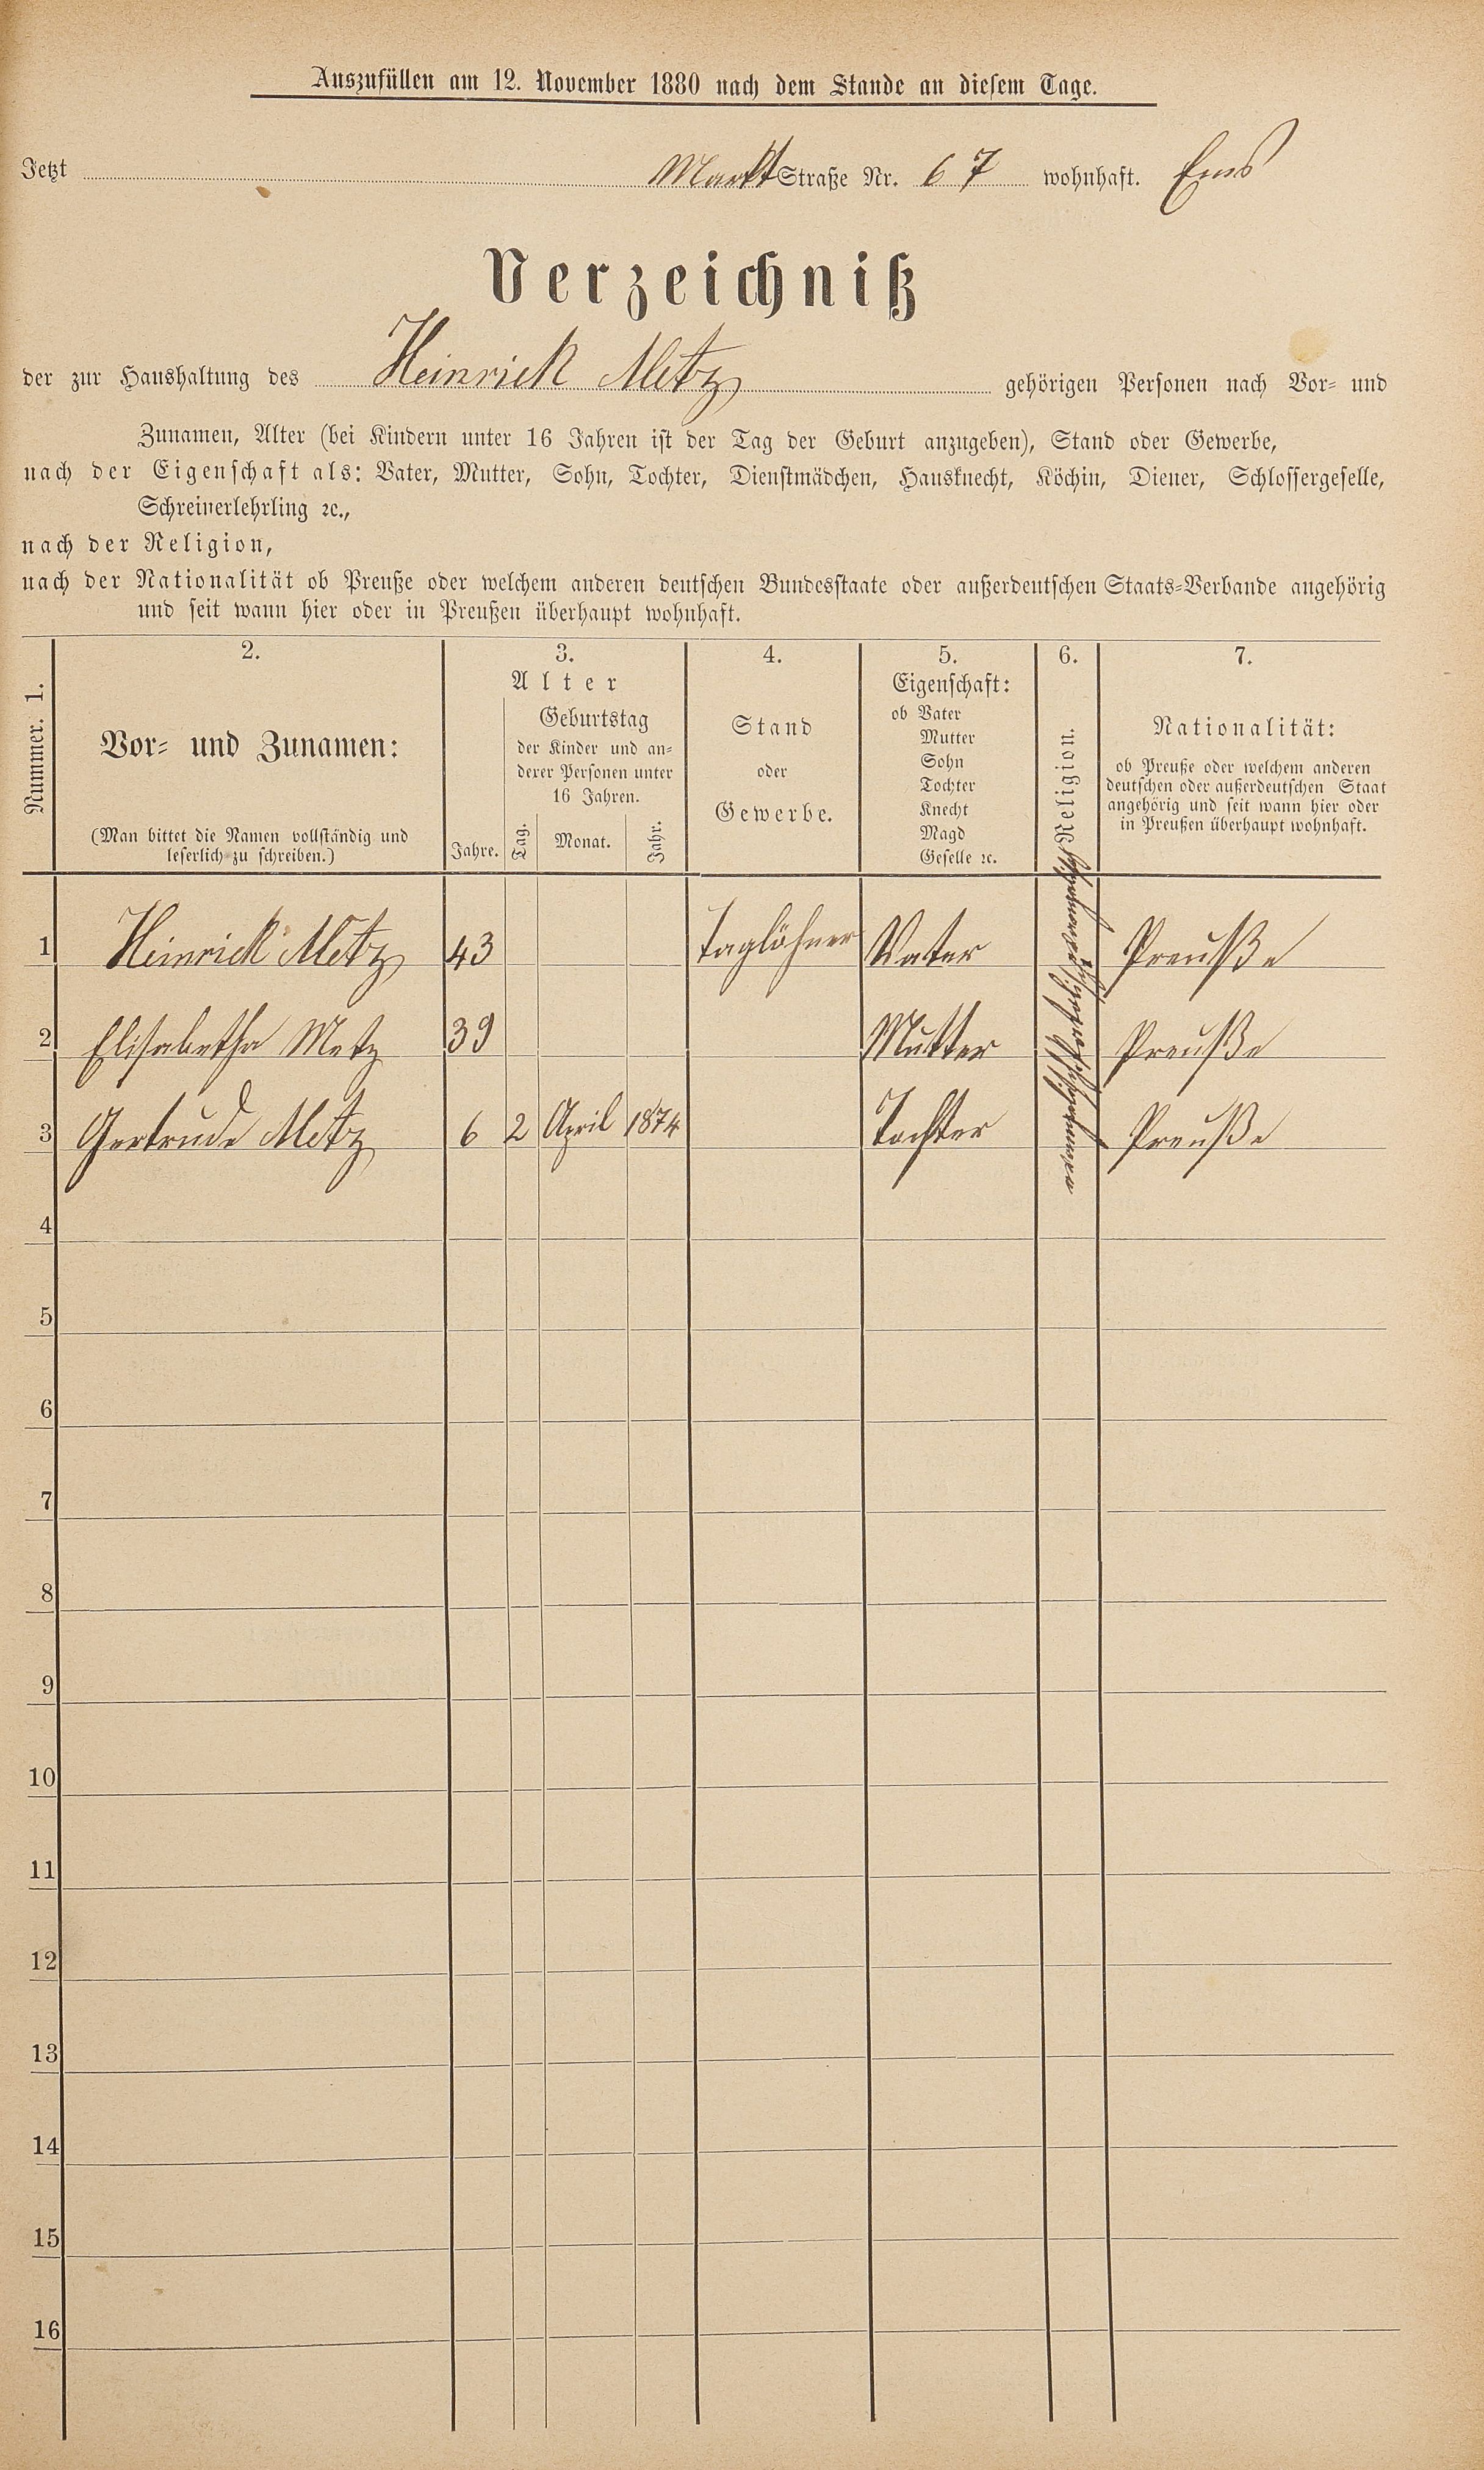 Auszufüllen am 12. November 1880 nach dem Stande an diesem Tage.
Jetzt Markt Straße Nr. 67 wohnhaft. Ems
Verzeichniß
der zur Haushaltung des Heinrich Metz gehörigen Personen nach Vor- und
Zunamen, Alter (bei Kindern unter 16 Jahren ist der Tag der Geburt anzugeben), Stand oder Gewerbe,
nach der Eigenschaft als: Vater, Mutter, Sohn, Tochter, Dienstmädchen, Hausknecht, Köchin, Diener, Schlossergeselle,
Schreinerlehrling ꝛc.,
nach der Religion,
nach der Nationalität ob Preuße oder welchem anderen deutschen Bundesstaate oder außerdeutschen Staats-Verbande angehörig
und seit wann hier oder in Preußen überhaupt wohnhaft.
Nummer. 1.
2.
Vor- und Zunamen:
(Man bittet die Namen vollständig und
leserlich zu schreiben.)
3.
Alter
Jahre.
Geburtstag
der Kinder und an-
derer Personen unter
16 Jahren.
Tag. Monat. Jahr.
4.
Stand
oder
Gewerbe.
5.
Eigenschaft:
ob Vater
Mutter
Sohn
Tochter
Knecht
Magd
Geselle ꝛc.
6.
Religion.
7.
Nationalität:
ob Preuße oder welchem anderen
deutschen oder außerdeutschen Staat
angehörig und seit wann hier oder
in Preußen überhaupt wohnhaft.
1 Heinrich Metz 43 Taglöhner Vater Preuße
2 Elisabetha Metz 39 Mutter Preuße
3 Gertrude Metz 6 2 April 1874 Tochter Preuße
4
5
6
7
8
9
10
11
12
13
14
15
16